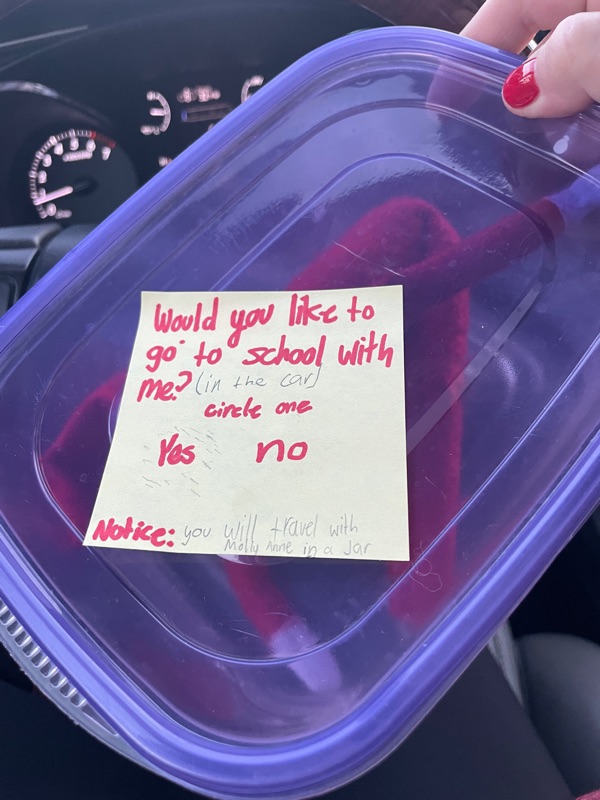 Would you like to
go to school with
me? (in the car)
circle one
Yes no
Notice: you will travel with
Molly Anne in a Jar